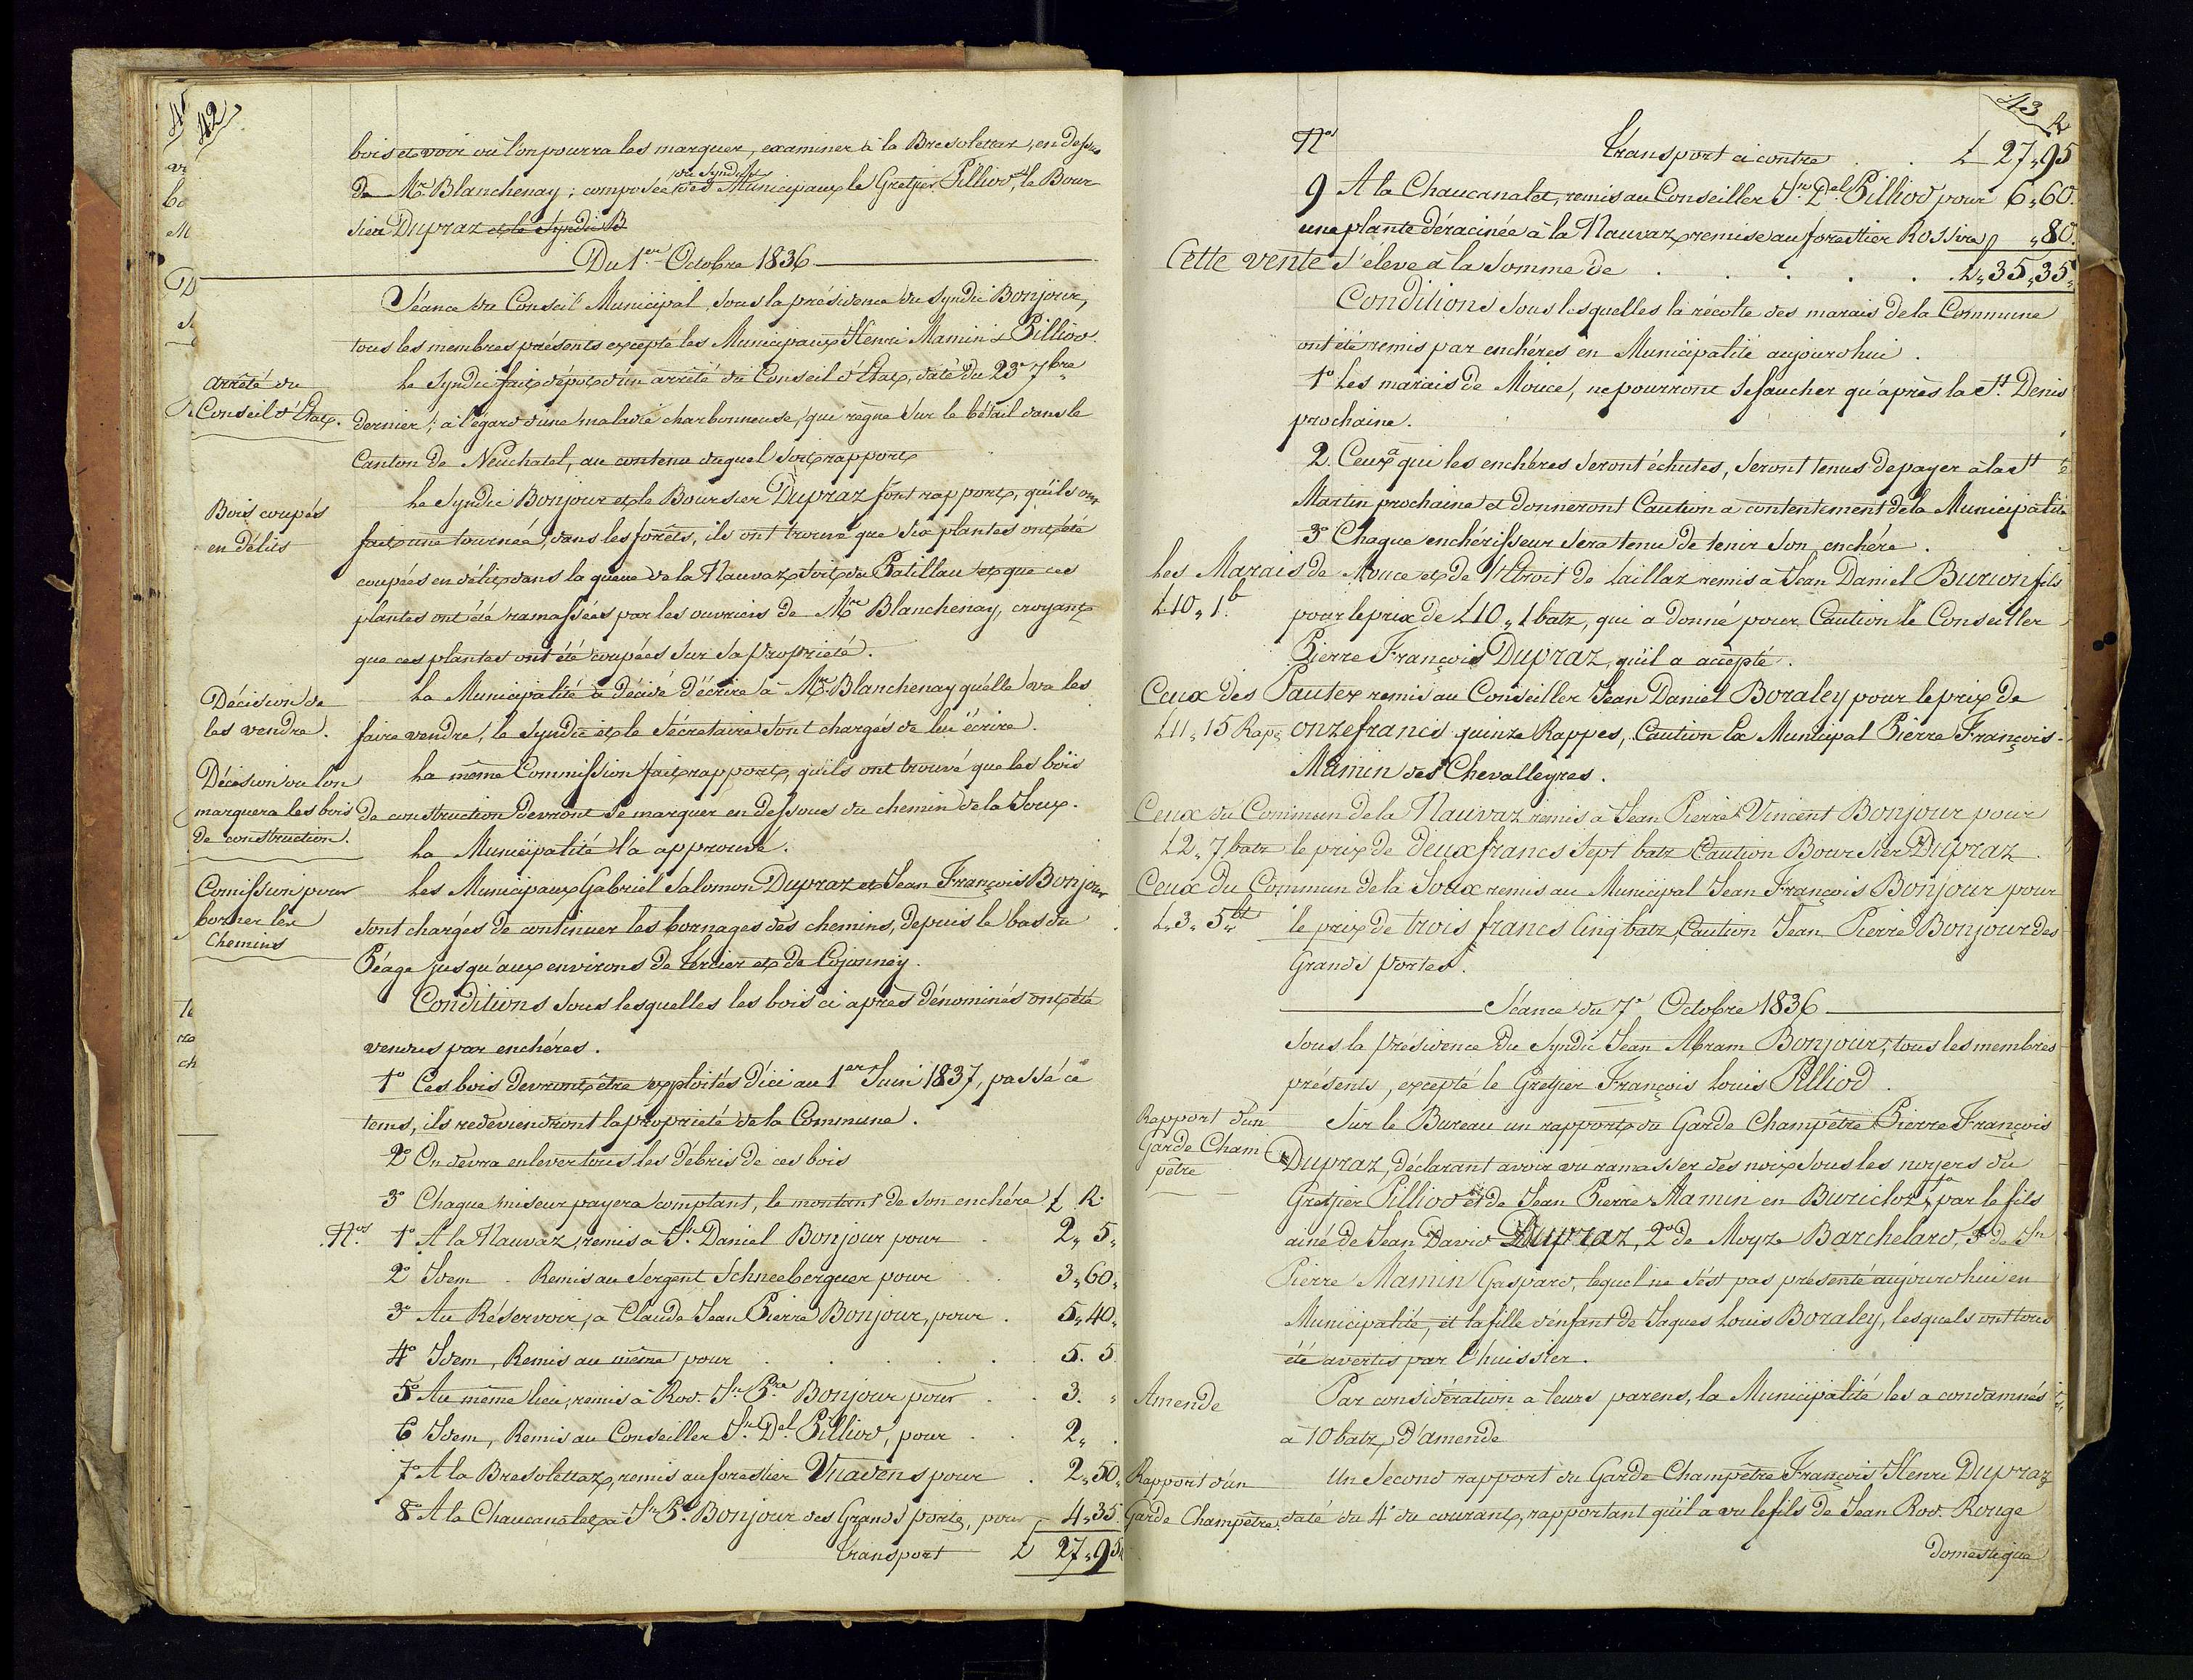 42
bois et voir où l'on pourra les marquer, examiner à la Bresolettaz, en dessus
du Syndic
de Mr Blanchenay; composée des Municipaux le Greffier Pilliod, le Bour-
sier Dupraz et le Syndic B
Du 1er Octobre 1836
Séance du Conseil Municipal sous la présidence du Syndic Bonjour,
tous les membres présents excepté les Municipaux Henri Mamin & Pilliod.
arrêté du
Conseil d'Etat.
Le Syndic fait dépot d'un arrêté du Conseil d'État, daté du 23e 7bre
dernier; à l'égard d'une maladie charbonneuse, qui règne sur le bétail dans le
Canton de Neuchatel, au contenu duquel soit rapport
Bois coupés
en délits
Le Syndic Bonjour et le Boursier Dupraz font rapport, qu'ils ont
fait une tournée, dans les forêts, ils ont trouvé que six plantes ont été
coupées en délit dans la queue de la Nauvaz soit du Patillau et que ces
plantes ont été ramassées par les ouvriers de Mr Blanchenay, croyant
que ces plantes ont été coupées sur sa propriété.
Décision de
les vendre.
La Municipalité a décidé d'écrire à Mr Blanchenay qu'elle va les
faire vendre, le Syndic et le Sécretaire sont chargés de lui écrire.
Décision ou l'on
marquera les bois
de construction.
La même Commission fait rapport, qu'ils ont trouvé que les bois
de construction devront se marquer en dessous du chemin de la Soux.
La Municipalité l'a approuvé.
Comission pour
borner les
Chemins
Les Municipaux Gabriel Salomon Dupraz et Jean François Bonjour
sont chargés de continuer les bornages des chemins, depuis le bas du
Péage jusqu'aux environs de Tercier et de Cojonney.
Conditions sous lesquelles les bois ci après dénominés ont été
vendus par enchéres.
1o Ces bois devront être exploités d'ici au 1er Juin 1837, passé ce
tems, ils redeviendront la propriété de la Commune.
2o On devra enlever tous les débris de ces bois
3o Chaque miseur payera comptant, le montant de son enchére L R.
Nos 1o A la Nauvaz, remis à Jn Daniel Bonjour pour . 2,, 5,,
2o Idem . Remis au Sergent Schneeberguer pour . . 3,,60,,
3o Au Réservoir, à Claude Jean Pierre Bonjour, pour . 5,,40,,
4o Idem, Remis au même pour . . . . . 5. 5
5o Au même lieu, remis à Rod. Jn Pre Bonjour pour . . 3. ,,
6 Idem, Remis au Conseiller Jn Del Pilliod, pour . . 2,,
7o A la Bresolettaz, remis au forestier Vuadens pour . 2,,50,,
8o A la Chaucanalet à Jn P. Bonjour des Grands portes, pour 4,,35
Transport L 27,,95
43
No R
Transport ci contre . . L 27,,95
9 A la Chaucanalet, remis au Conseiller Jn Del Pilliod pour 6,,60.
une plante déracinée à la Nauvaz remise au forestier Rossire ,,80.
Cette vente s'éleve à la somme de . . . . . L,,35,,35,,
Conditions sous lesquelles la récolte des marais de la Commune
ont été remis par enchéres en Municipalité aujourdhui.
1o Les marais de Mouce, ne pourront se faucher qu'après la St Denis
prochaine.
2. Ceux à qui les enchéres seront échutes, seront tenus de payer à la St
Martin prochaine et donneront Caution a contentement de la Municipalité
3o Chaque enchérisseur sera tenu de tenir son enchére.
Les Marais de Mouce et de l'Etroit de Laillaz remis à Jean Daniel Burion fils
L 10,, 1b. pour le prix de L 10,, 1 batz, qui a donné pour Caution le Conseiller
Pierre François Dupraz, qu'il a accepté.
Ceux des Pautex remis au Conseiller Jean Daniel Boraley pour le prix de
L 11,, 15 Rap. onze francs quinze Rappes, Caution le Municipal Pierre François
Mamin des Chevalleyres.
Ceux du Commun de la Nauvaz remis à Jean Pierre Vincent Bonjour pour
L 2,, 7 batz le prix de deux francs sept batz Caution Boursier Dupraz.
Ceux du Commun de la Soux remis au Municipal Jean François Bonjour pour
L,,3,, 5 bz le prix de trois francs cinq batz, Caution Jean Pierre Bonjour des
Grands portes.
Séance du 7e Octobre 1836
sous la présidence du Syndic Jean Abram Bonjour, tous les membres
présents, excepté le Greffier François Louis Pilliod.
Rapport d'un
Garde Cham
pêtre
Sur le Bureau un rapport du Garde Champêtre Pierre François
Dupraz, déclarant avoir vu ramasser des noix sous les noyers du
Greffier Pilliod et de Jean Pierre Mamin en Buricloz, 1o par le fils
ainé de Jean David Dupraz, 2o de Moyze Barchelard, 3o de Jn
Pierre Mamin Gaspard, lequel ne s'est pas présenté aujourdhui en
Municipalité, et la fille d'enfant de Jaques Louis Boraley, lesquels ont tous
été avertis par l'huissier.
Amende
Par considération a leurs parens, la Municipalité les a condamnés
à 10 batz, d'amende
Rapport d'un
Garde Champêtre.
Un Second rapport du Garde Champêtre François Henri Dupraz
daté du 4e du courant, rapportant qu'il a vu le fils de Jean Rod. Rouge
domestique